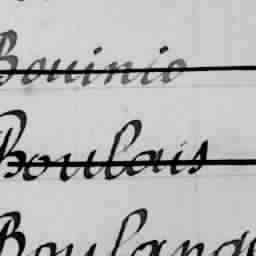 Bouinio
Boulais
Boulang